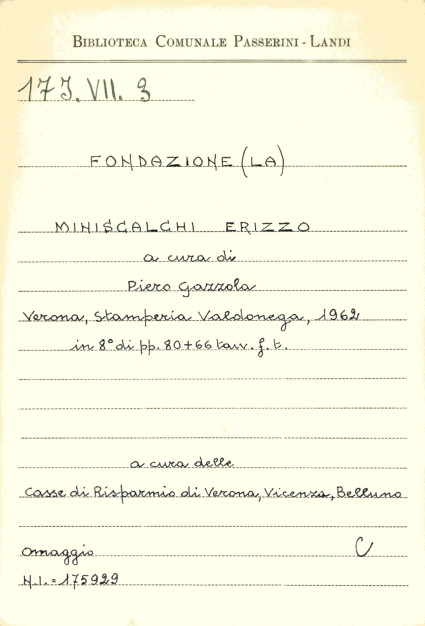 BIBLIOTECA COMUNALE PASSERINI - LANDI
17 J. VII. 3
FONDAZIONE (LA)
MINISCALCHI ERIZZO
a cura di
Piero Gazzola
Verona, Stamperia Valdonega, 1962
in 8° di pp. 80+66 tav. f. t.
a cura delle
Casse di Risparmio di Verona, Vicenza, Belluno
omaggio C
N.I. = 175929